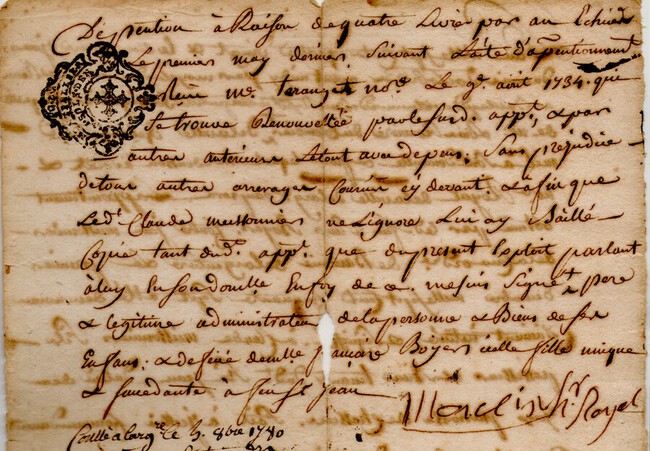 De pention à Raison de quatre Livres par an Echües
Le premier may dernier, suivant L'acte d'apentionnemt
Reçu me Taranget nore Le 9e avril 1734. que
se trouve Renouvellée par le susd. appt, & par
autres anterieurs
Sans prejudice
de tous autres arrerages Courus cy devant, & afin que
Led. Claude meissonnier ne L'ignore Luy ay Baillé
Copie tant dud. appt. que du present Exploit parlant
à luy En son domille En foy de ce. me suis signé
pere
& legitime administrateur de la personne & Biens de ses
Enfans; & de feüe demlle françoise Boyer icelle fille unique
& succedante à feu Sr Jean
hr Royal
Collé à
le 5. 8bre 1780